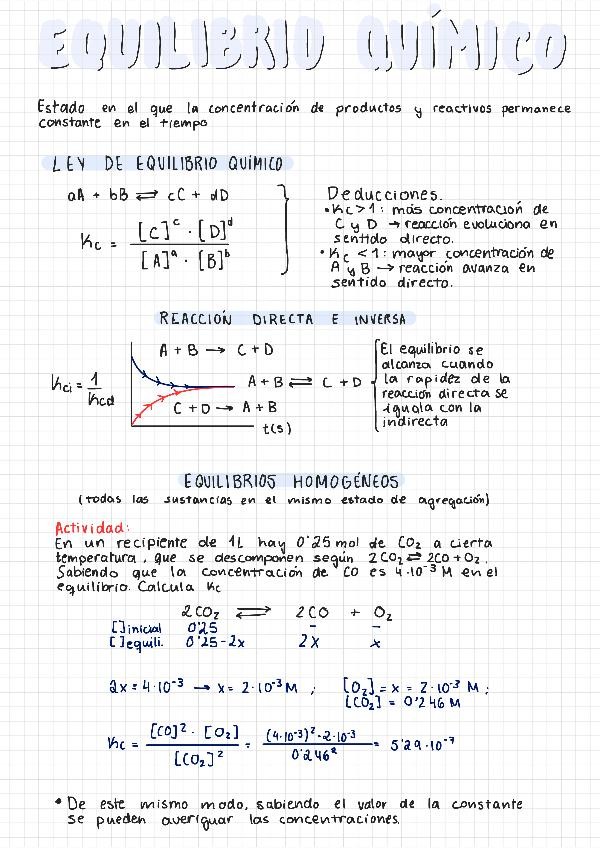 EQUILIBRIO QUÍMICO
Estado en el que la concentración de productos y reactivos permanece
constante en el tiempo
LEY DE EQUILIBRIO QUÍMICO
aA + bB ⇌ cC + dD
Kc = [C]ᶜ · [D]ᵈ / [A]ᵃ · [B]ᵇ
Deducciones.
• Kc > 1 : más concentración de
C y D → reacción evoluciona en
sentido directo.
• Kc < 1 : mayor concentración de
A y B → reacción avanza en
sentido directo.
REACCIÓN DIRECTA E INVERSA
A + B → C + D
Kci = 1 / Kcd
A + B ⇌ C + D
C + D → A + B
t(s)
El equilibrio se
alcanza cuando
la rapidez de la
reacción directa se
iguala con la
indirecta
EQUILIBRIOS HOMOGÉNEOS
(todas las sustancias en el mismo estado de agregación)
Actividad:
En un recipiente de 1L hay 0'25 mol de CO₂ a cierta
temperatura, que se descomponen según 2CO₂ ⇌ 2CO + O₂.
Sabiendo que la concentración de CO es 4·10⁻³ M en el
equilibrio. Calcula Kc
2CO₂ ⇌ 2CO + O₂
[ ]inicial 0'25 - -
[ ]equili. 0'25-2x 2x x
2x = 4·10⁻³ → x = 2·10⁻³ M ; [O₂] = x = 2·10⁻³ M ;
[CO₂] = 0'246 M
Kc = [CO]² · [O₂] / [CO₂]² = (4·10⁻³)² · 2·10⁻³ / 0'246² = 5'29·10⁻⁷
• De este mismo modo, sabiendo el valor de la constante
se pueden averiguar las concentraciones.